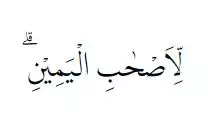 لِّاَصْحٰبِ الْيَمِيْنِۗ